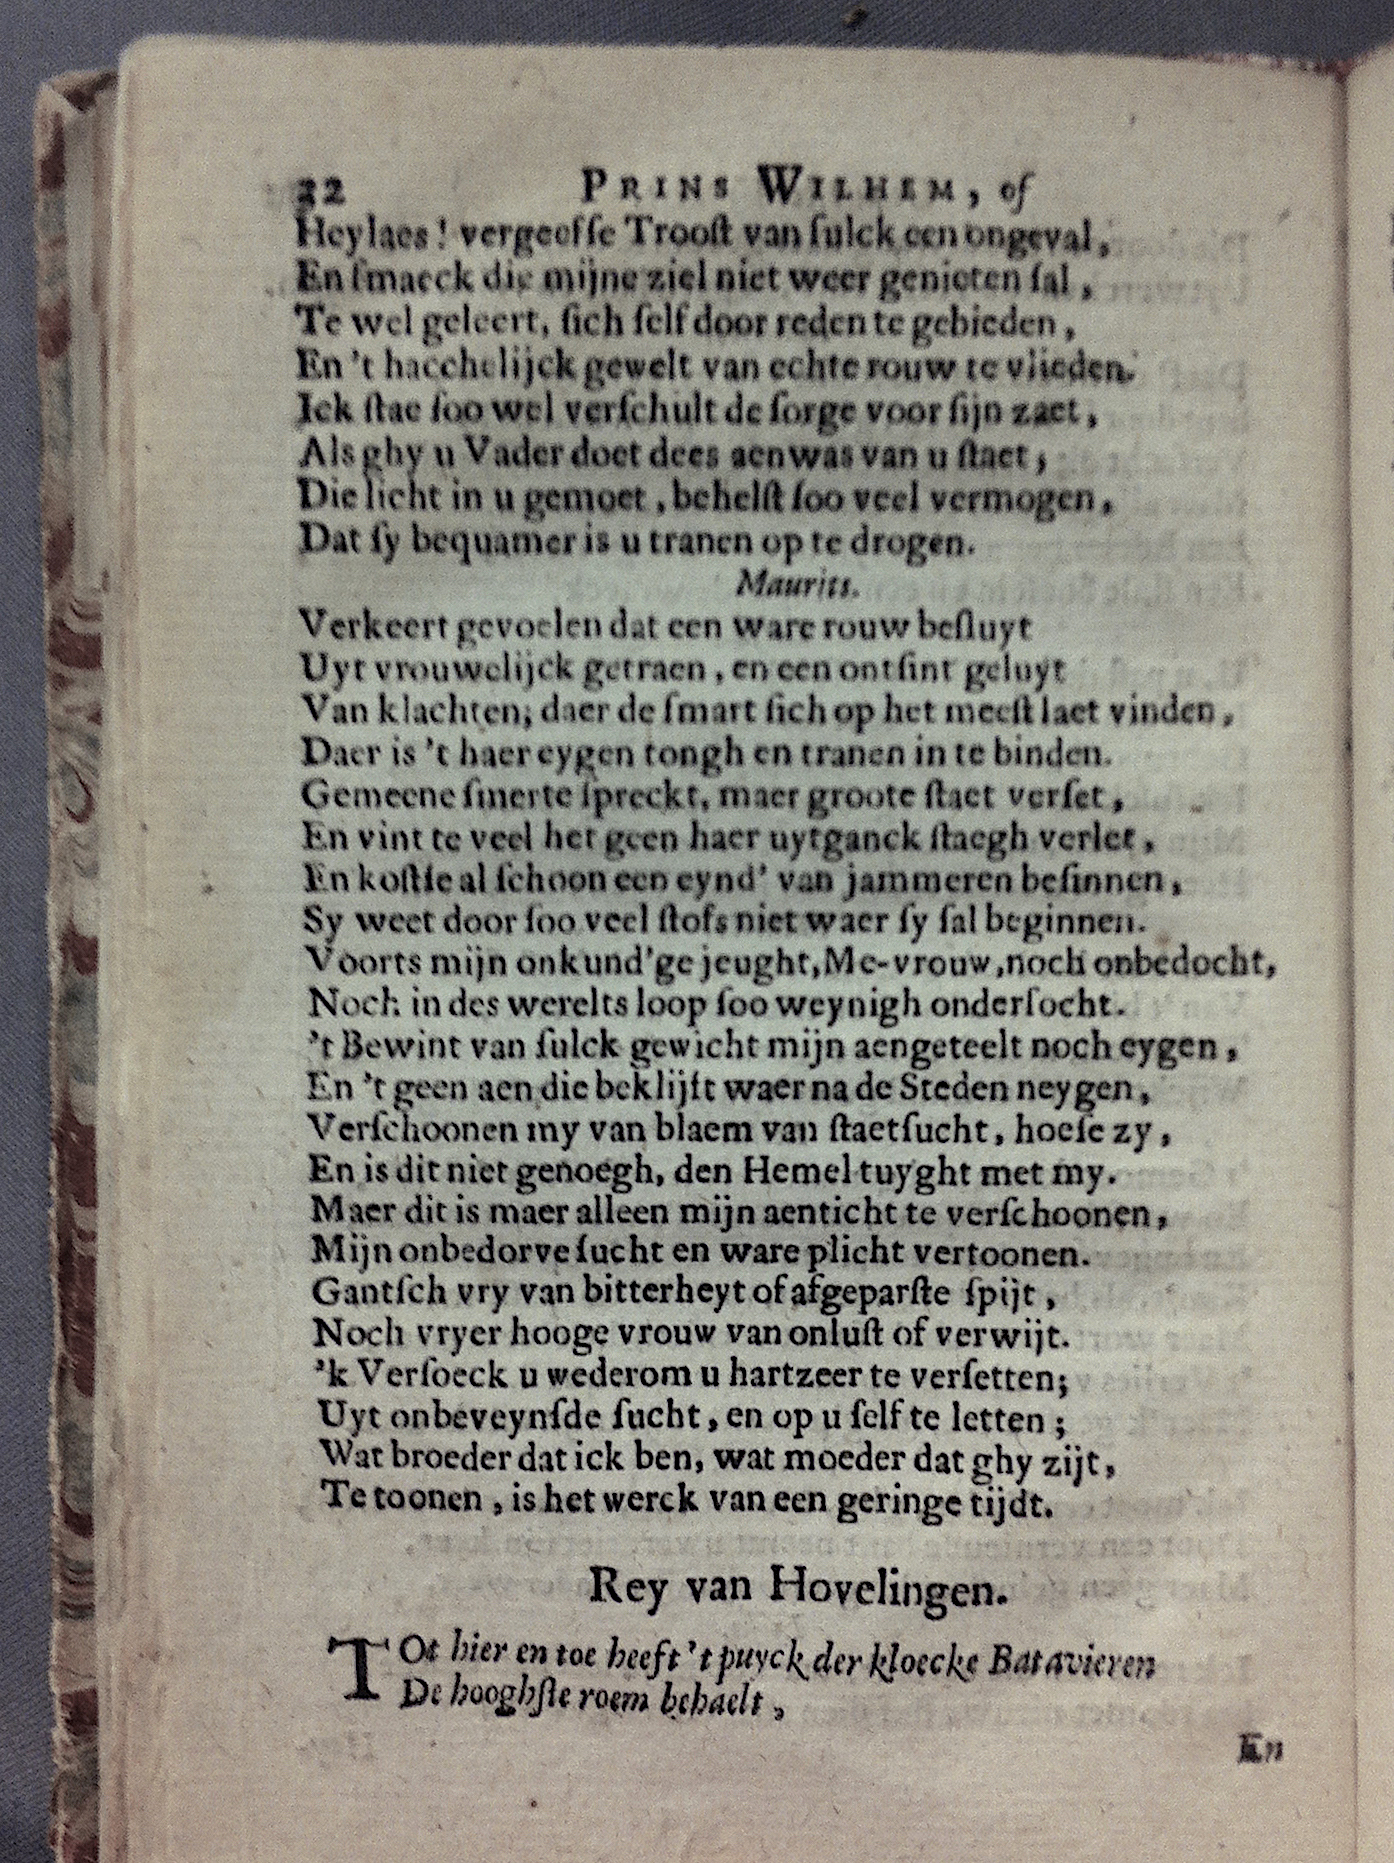 22 PRINS WILHEM, of
Heylaes! vergeefse Troost van sulck een ongeval,
En smaeck die mijne ziel niet weer genieten sal,
Te wel geleert, sich self door reden te gebieden,
En 't hacchelijck gewelt van echte rouw te vlieden.
Ick stae soo wel verschult de sorge voor sijn zaet,
Als ghy u Vader doet dees aenwas van u staet,
Die licht in u gemoet, behelst soo veel vermogen,
Dat sy bequamer is u tranen op te drogen.
Maurits.
Verkeert gevoelen dat een ware rouw besluyt
Uyt vrouwelijck getraen, en een ontsint geluyt
Van klachten; daer de smart sich op het meest laet vinden,
Daer is 't haer eygen tongh en tranen in te binden.
Gemeene smerte spreckt, maer groote staet verset,
En vint te veel het geen haer uytganck staegh verlet,
En kostse al schoon een eynd' van jammeren besinnen,
Sy weet door soo veel stofs niet waer sy sal beginnen.
Voorts mijn onkund'ge jeught, Me-vrouw, noch onbedocht,
Noch in des werelts loop soo weynigh ondersocht.
't Bewint van sulck gewicht mijn aengeteelt noch eygen,
En 't geen aen die beklijft waer na de Steden neygen,
Verschoonen my van blaem van staetsucht, hoese zy,
En is dit niet genoegh, den Hemel tuyght met my.
Maer dit is maer alleen mijn aenticht te verschoonen,
Mijn onbedorve sucht en ware plicht vertoonen.
Gantsch vry van bitterheyt of afgeparste spijt,
Noch vryer hooge vrouw van onlust of verwijt.
'k Versoeck u wederom u hartzeer te versetten;
Uyt onbeveynsde sucht, en op u self te letten;
Wat broeder dat ick ben, wat moeder dat ghy zijt,
Te toonen, is het werck van een geringe tijdt.
Rey van Hovelingen.
TOt hier en toe heeft 't puyck der kloecke Batavieren
De hooghste roem behaelt,
En